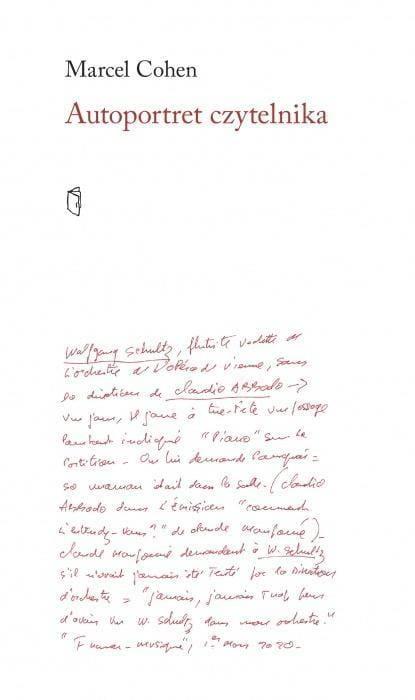 Marcel Cohen
Autoportret czytelnika
Wolfgang Schultz, flûtiste vedette de
l'orchestre de l'Opéra de Vienne, sous
la direction de Claudio Abbado ->
un jour, il joue à tue-tête un passage
pourtant indiqué "Piano" sur la
partition - On lui demande pourquoi =
sa maman était dans la salle - (Claudio
Abbado dans l'émission "comment
l'entendez-vous?" de Claude Maupomé) -
Claude Maupomé demandant à W. Schultz
s'il n'avait jamais été tenté par la direction
d'orchestre = "jamais, jamais
d'avoir un W. Schultz dans mon orchestre."
"France-musique", 1er mars 2020 -